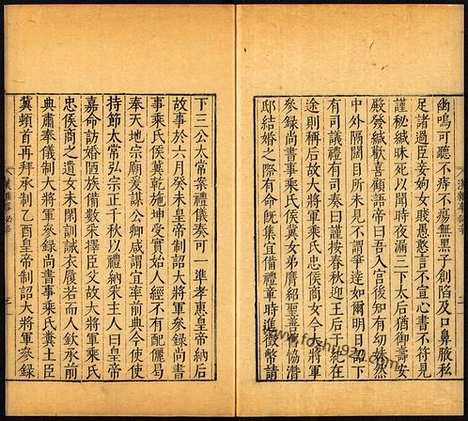 幽鳴可聽不痔不瘍無黑子創陷及口鼻腋私
足諸過臣妾姁女賤愚憨言不宣心書不符見
謹秘緘昧死以聞時夜漏三下太后猶御壽安
殿發緘歡喜顧語帝曰吾
中外隔闊以前不謂爭達如爾
有司議禮有司奏曰謹按春秋迎王后于紀在
途則稱后故大將軍乘氏侯商女今大將軍
參錄尚書事乘氏侯冀女弟膺紹聖善結協潛
邸結婚之際有命既集宜備禮章時進徵幣請
漢雜事秘辛
二
漢雜事秘辛
三
下三公太常案禮儀奏可一準孝惠皇帝納后
故事於六月癸未皇帝制詔大將軍參錄尚書
事乘氏侯冀乾施坤受實始人經不有配儷曷
奉天地宗廟爰謀公卿咸謂宜率前典今使使
持節太常弘宗正千秋以禮納采主人曰皇帝
嘉命訪婚陋族備數采擇臣父故大將軍乘氏
忠侯商之遺女未閑訓誡衣履若而人欽承前
典肅奉儀制大將軍參錄尚書事乘氏忠侯臣
冀頓首再拜承制乙酉皇帝制詔大將軍參錄